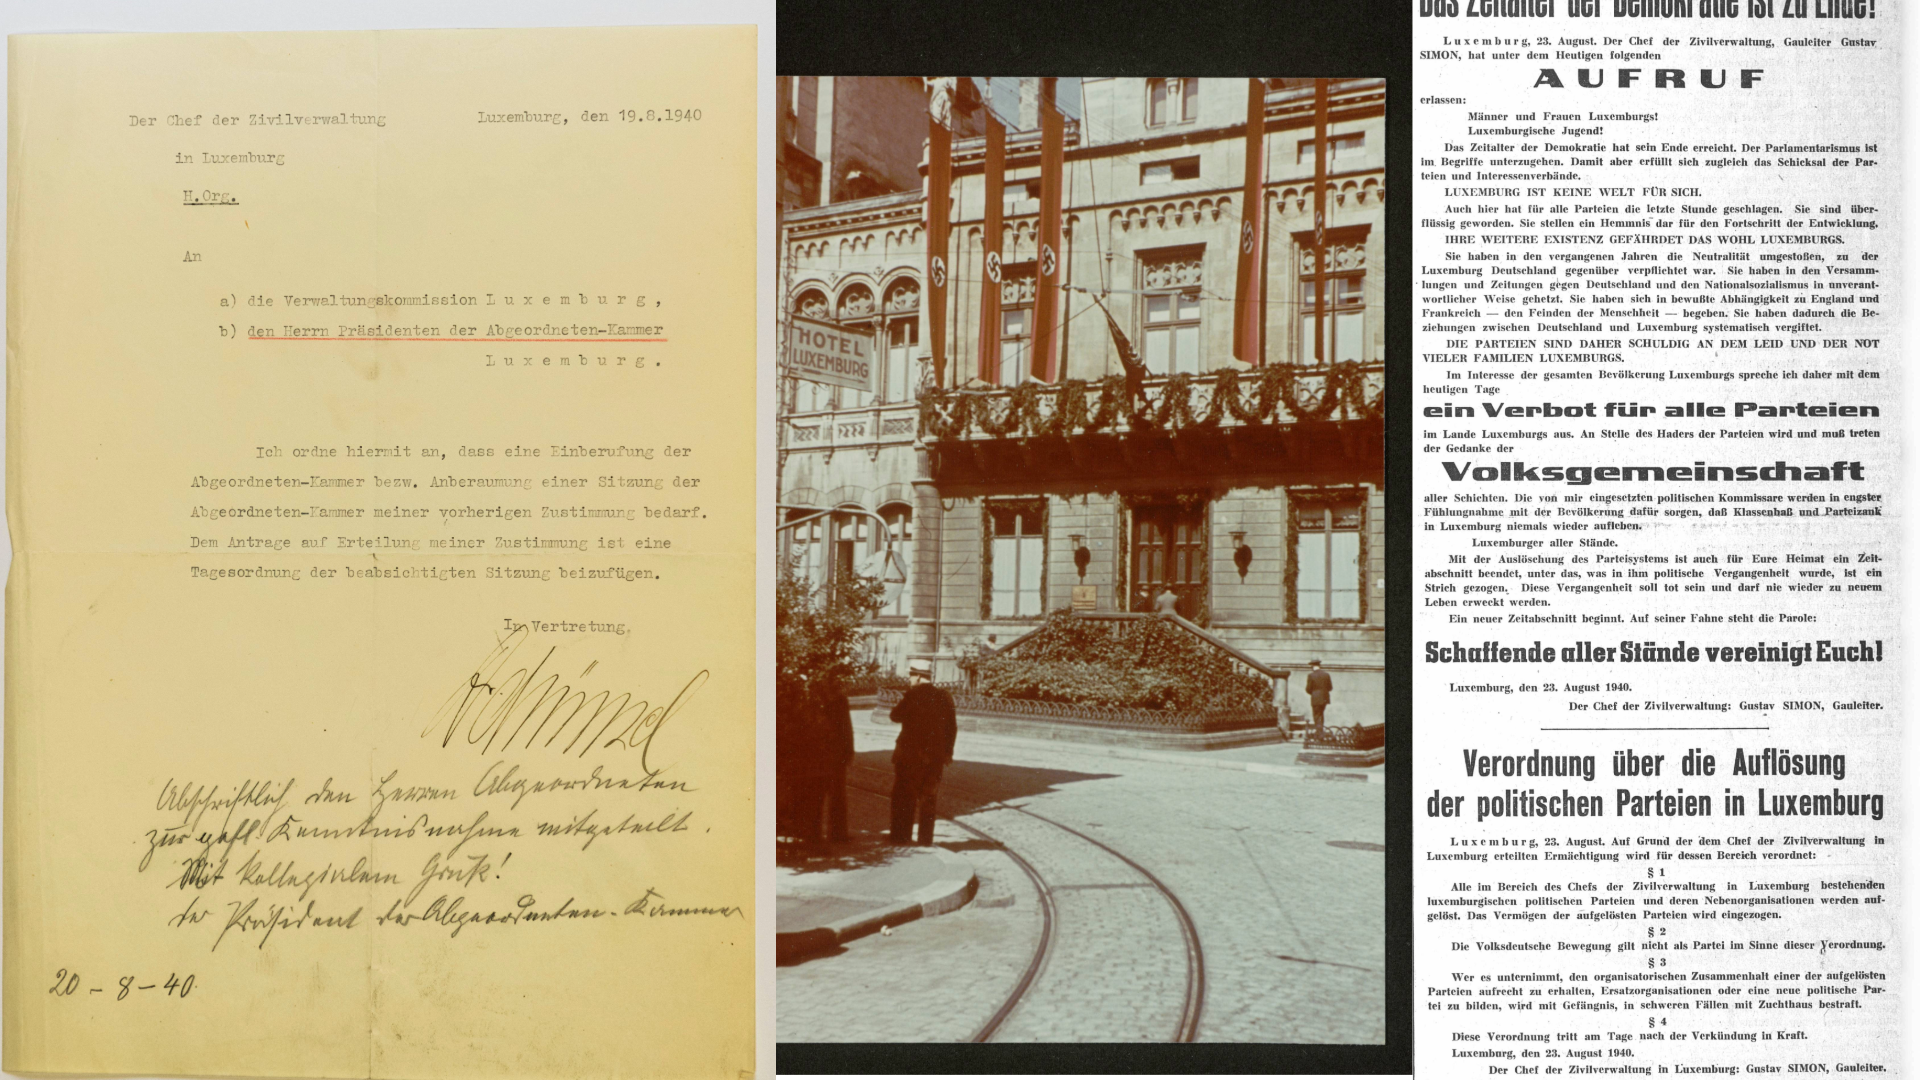 Der Chef der Zivilverwaltung
Luxemburg, den 19.8.1940
in Luxemburg
H.Org.
An
a) die Verwaltungskommission Luxemburg,
b) den Herrn Präsidenten der Abgeordneten-Kammer
Luxemburg.
Ich ordne hiermit an, dass eine Einberufung der
Abgeordneten-Kammer bezw. Anberaumung einer Sitzung der
Abgeordneten-Kammer meiner vorherigen Zustimmung bedarf.
Dem Antrage auf Erteilung meiner Zustimmung ist eine
Tagesordnung der beabsichtigten Sitzung beizufügen.
In Vertretung.
Abschriftlich den Herren Abgeordneten
zur gefl. Kenntnisnahme mitgeteilt.
Mit kollegialem Gruß!
der Präsident der Abgeordneten-Kammer
20-8-40
HOTEL
LUXEMBURG
Das Zeitalter der Demokratie ist zu Ende!
Luxemburg, 23. August. Der Chef der Zivilverwaltung, Gauleiter Gustav
SIMON, hat unter dem Heutigen folgenden
AUFRUF
erlassen:
Männer und Frauen Luxemburgs!
Luxemburgische Jugend!
Das Zeitalter der Demokratie hat sein Ende erreicht. Der Parlamentarismus ist
im Begriffe unterzugehen. Damit aber erfüllt sich zugleich das Schicksal der Par-
teien und Interessenverbände.
LUXEMBURG IST KEINE WELT FÜR SICH.
Auch hier hat für alle Parteien die letzte Stunde geschlagen. Sie sind über-
flüssig geworden. Sie stellen ein Hemmnis dar für den Fortschritt der Entwicklung.
IHRE WEITERE EXISTENZ GEFÄHRDET DAS WOHL LUXEMBURGS.
Sie haben in den vergangenen Jahren die Neutralität umgestoßen, zu der
Luxemburg Deutschland gegenüber verpflichtet war. Sie haben in den Versamm-
lungen und Zeitungen gegen Deutschland und den Nationalsozialismus in unverant-
wortlicher Weise gehetzt. Sie haben sich in bewußte Abhängigkeit zu England und
Frankreich — den Feinden der Menschheit — begeben. Sie haben dadurch die Be-
ziehungen zwischen Deutschland und Luxemburg systematisch vergiftet.
DIE PARTEIEN SIND DAHER SCHULDIG AN DEM LEID UND DER NOT
VIELER FAMILIEN LUXEMBURGS.
Im Interesse der gesamten Bevölkerung Luxemburgs spreche ich daher mit dem
heutigen Tage
ein Verbot für alle Parteien
im Lande Luxemburgs aus. An Stelle des Haders der Parteien wird und muß treten
der Gedanke der
Volksgemeinschaft
aller Schichten. Die von mir eingesetzten politischen Kommissare werden in engster
Fühlungnahme mit der Bevölkerung dafür sorgen, daß Klassenhaß und Parteizank
in Luxemburg niemals wieder aufleben.
Luxemburger aller Stände.
Mit der Auslöschung des Parteisystems ist auch für Eure Heimat ein Zeit-
abschnitt beendet, unter das, was in ihm politische Vergangenheit wurde, ist ein
Strich gezogen. Diese Vergangenheit soll tot sein und darf nie wieder zu neuem
Leben erweckt werden.
Ein neuer Zeitabschnitt beginnt. Auf seiner Fahne steht die Parole:
Schaffende aller Stände vereinigt Euch!
Luxemburg, den 23. August 1940.
Der Chef der Zivilverwaltung: Gustav SIMON, Gauleiter.
Verordnung über die Auflösung
der politischen Parteien in Luxemburg
Luxemburg, 23. August. Auf Grund der dem Chef der Zivilverwaltung in
Luxemburg erteilten Ermächtigung wird für dessen Bereich verordnet:
§ 1
Alle im Bereich des Chefs der Zivilverwaltung in Luxemburg bestehenden
luxemburgischen politischen Parteien und deren Nebenorganisationen werden auf-
gelöst. Das Vermögen der aufgelösten Parteien wird eingezogen.
§ 2
Die Volksdeutsche Bewegung gilt nicht als Partei im Sinne dieser Verordnung.
§ 3
Wer es unternimmt, den organisatorischen Zusammenhalt einer der aufgelösten
Parteien aufrecht zu erhalten, Ersatzorganisationen oder eine neue politische Par-
tei zu bilden, wird mit Gefängnis, in schweren Fällen mit Zuchthaus bestraft.
§ 4
Diese Verordnung tritt am Tage nach der Verkündung in Kraft.
Luxemburg, den 23. August 1940.
Der Chef der Zivilverwaltung in Luxemburg: Gustav SIMON, Gauleiter.